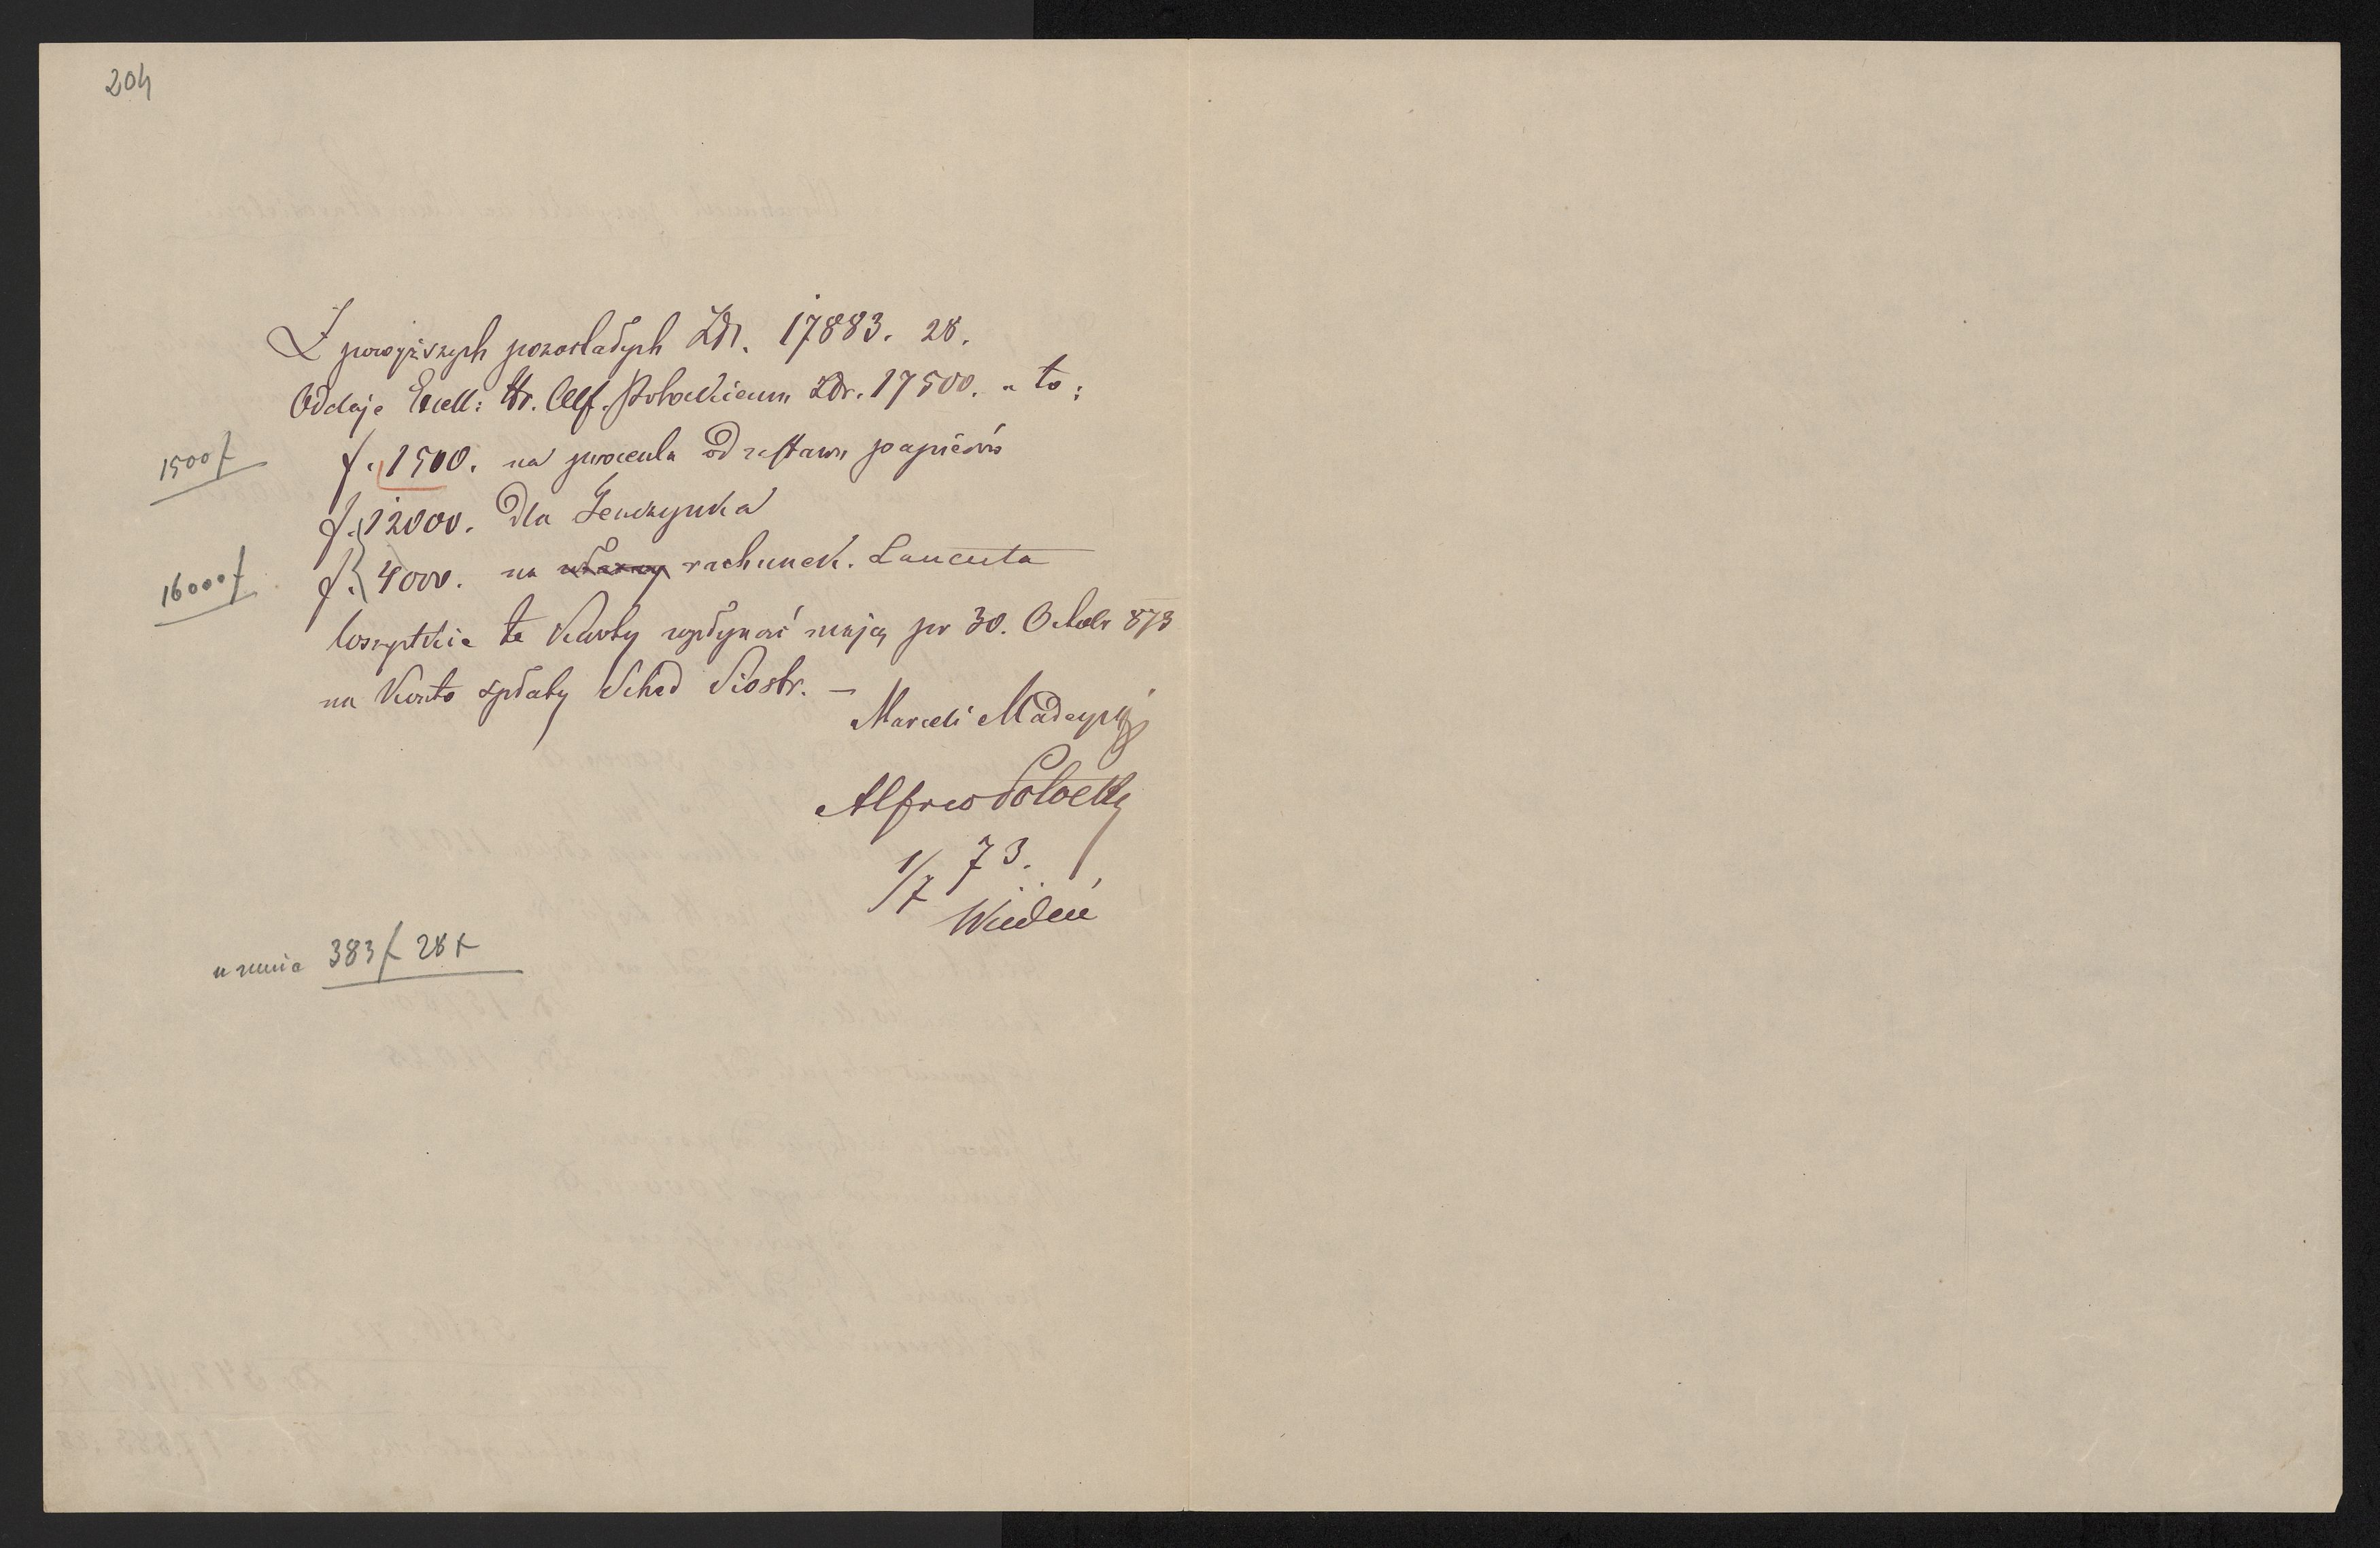 204
Z powyższych pozostałych Złr. 17883. 28.
Oddaje Excell: Hr. Alf. Potockiemu Złr. 17500. a to:
1500 f
f. 1500. na procenta od zastawu papierów
f. 12000. dla Tenczynka
16000 f
f. 4000. na własny rachunek. Łancuta
Wszystkie te Kwoty wpłynąć mają pr 30. Octobr 873
na Konto spłaty Sched Siostr. —
Marceli Madeyski
Alfred Potocki
1/7 73.
Wiedeń
u mnie 383 f 28 x